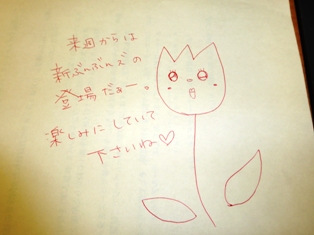 来週からは
新ぶんぶんズの
登場だぁー。
楽しみにしていて
下さいね♡